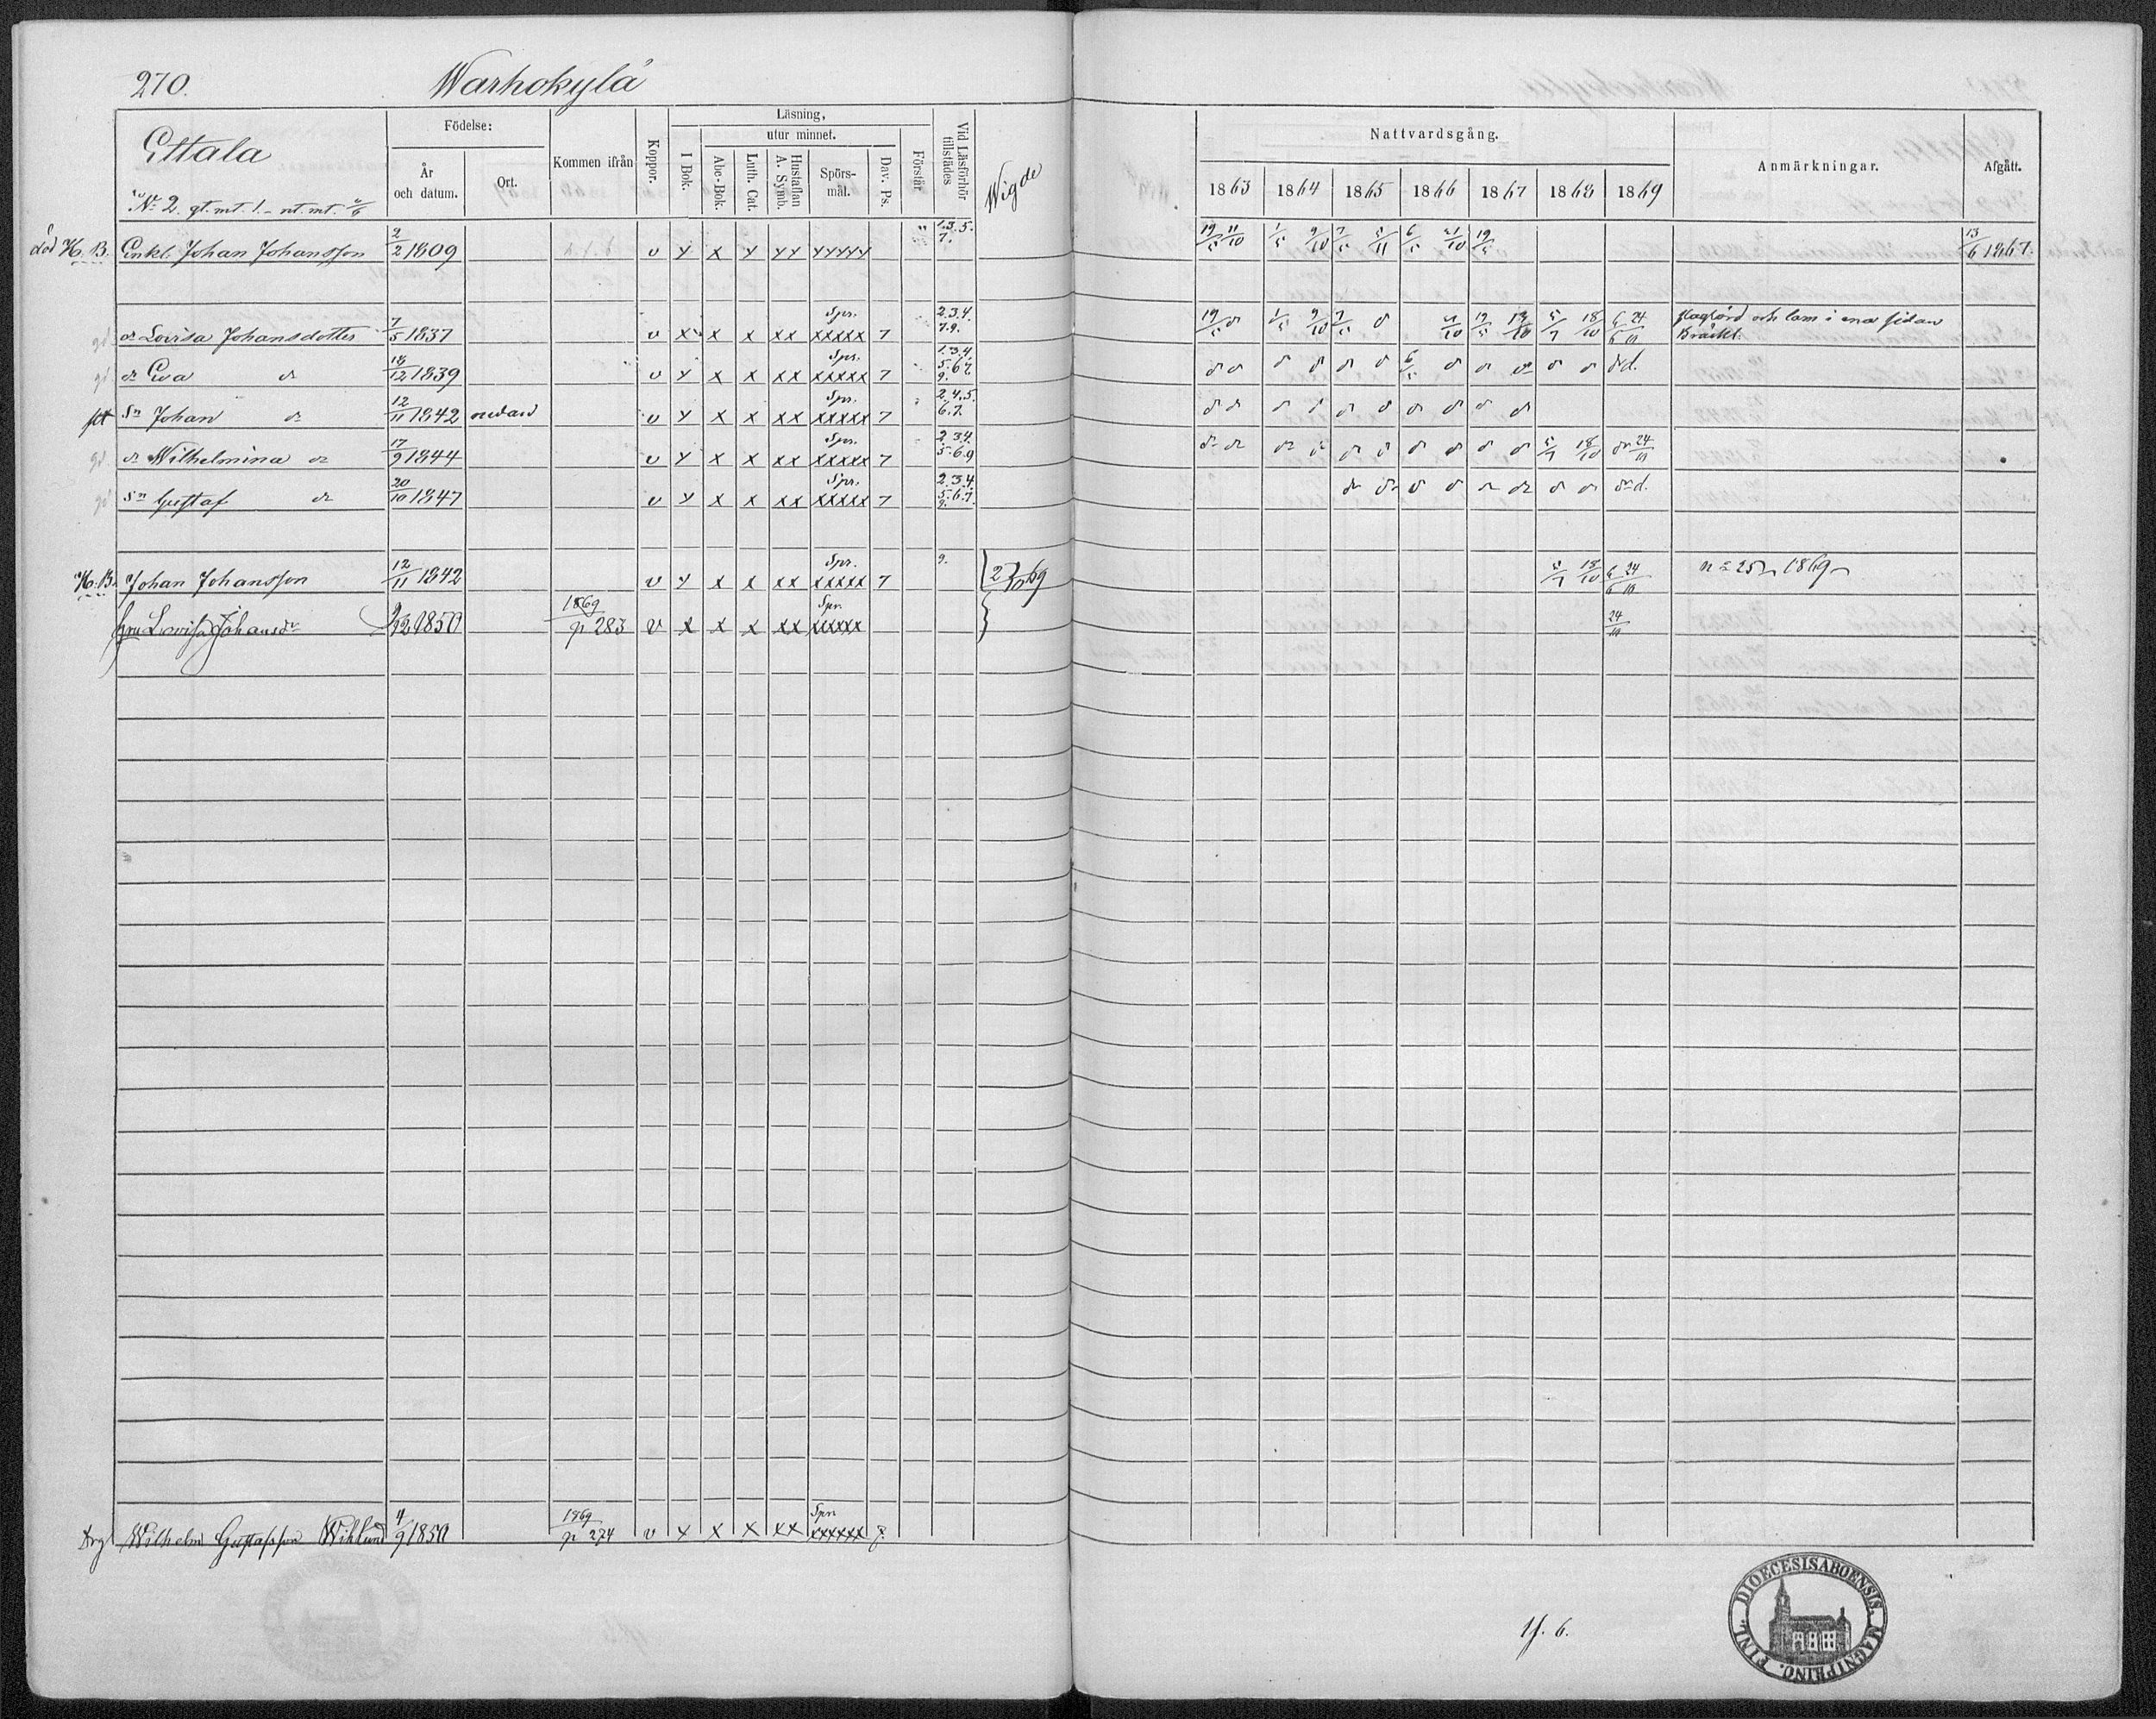 270. Warhokylä
Ettala
Nº 2. gt. mt. 1. – nt. mt.
Födelse:
År och datum.
Ort.
Kommen ifrån
Koppor.
Läsning,
I Bok.
utur minnet.
Abc-Bok.
Luth. Cat.
Hustaflan A. Symb.
Spörs-mål.
Dav. Ps.
Förstår
Vid Läsförhör tillstädes
Wigde
Nattvardsgång.
1863 1864 1865 1866 1867 1868 1869
Anmärkningar.
Afgått.
död H. B. Enkl. Johan Johansson 2/2 1809 v y x y yy yyyyy 1.3.5. 7. 19/5 11/10 1/5 9/10 7/5 5/11 6/5 21/10 19/5 13/6 1867.
dr Lovisa Johansdotter 7/5 1837 v x x x xx Spr. xxxxx 7 2.3.4. 7.9. 19/5 1/5 9/10 7/5 21/10 19/5 13/10 5/7 18/10 6/6 24/10 slagförd och lam i ena sidan Bräckl.
dr Eva dr 18/12 1839 v y x x xx Spr. xxxxx 7 1.3.4. 5.6.7. 9. 6/5
sn Johan dr 12/11 1842 nedan v y x x xx Spr. xxxxx 7 2.4.5. 6.7.
dr Wilhelmina dr 17/9 1844 v y x x xx Spr. xxxxx 7 2.3.4. 5.6.9 5/7 18/10 24/10
sn Gustaf dr 20/10 1847 v y x x xx Spr. xxxxx 7 2.3.4. 5.6.7. 9.
H. B. Johan Johansson 12/11 1842 v y x x xx Spr. xxxxx 7 9. 27/10 69 5/7 18/10 6/6 24/10 1869
hru Lovisa Johansdr 9/12 1850 1869 p 283 v x x x xx Spr. xxxxx 24/10
Drg Wilhelm Gustafsson Wiklund 4/9 1850 1869 p 274 v y x x xx Spr. xxxxxx 8.
1f. 6.
DIOECESIS ABOENSIS. MAGNI PRINC. FINL.